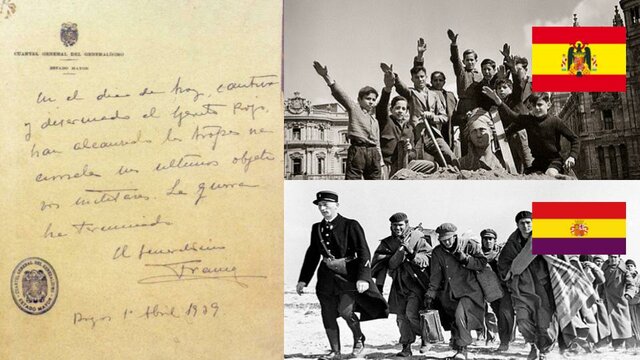 CUARTEL GENERAL DEL GENERALISIMO
ESTADO MAYOR
En el dia de hoy, cautivo
y desarmado el Ejercito Rojo,
han alcanzado las tropas na-
cionales sus ultimos objeti-
vos militares. La guerra
ha terminado
El Generalisimo
Franco
Burgos 1º Abril 1939